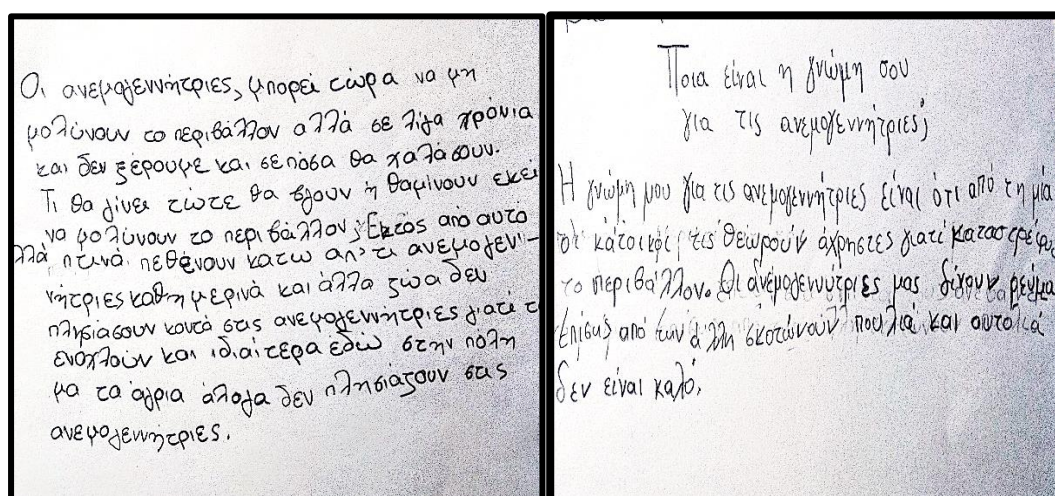 Οι ανεμογεννήτριες, μπορεί τώρα να μη
μολύνουν το περιβάλλον αλλά σε λίγα χρόνια
και δεν ξέρουμε και σε πόσα θα χαλάσουν.
Τι θα γίνει τώτε θα βγουν ή θαμίνουν εκεί
να μολύνουν το περιβάλλον; Εκτός από αυτό
λλά πτινά πεθένουν κατω απ'τι ανεμογεν'-
νήτριες καθημερινά και άλλα ζώα δεν
πλησιάσουν κοντά στις ανεμογεννήτριες γιατί τ
ενοχλούν και ιδιαίτερα εδώ στην πόλη
μα τα άγρια άλογα δεν πλησιάζουν στις
ανεμογεννήτριες.
Ποια είναι η γνώμη σου
για τις ανεμογεννήτριες;
Η γνώμη μου για τις ανεμογεννήτριες είναι ότι από τη μία
οι κάτοικοι τις θεωρούν άχρηστες γιατί καταστρέφου
το περιβάλλον. Οι ανεμογεννύτριες μας δίχουν ρεύμα
επίσης από των άλλη σκοτώνουν πουλιά και αυτο
δεν είναι καλό.